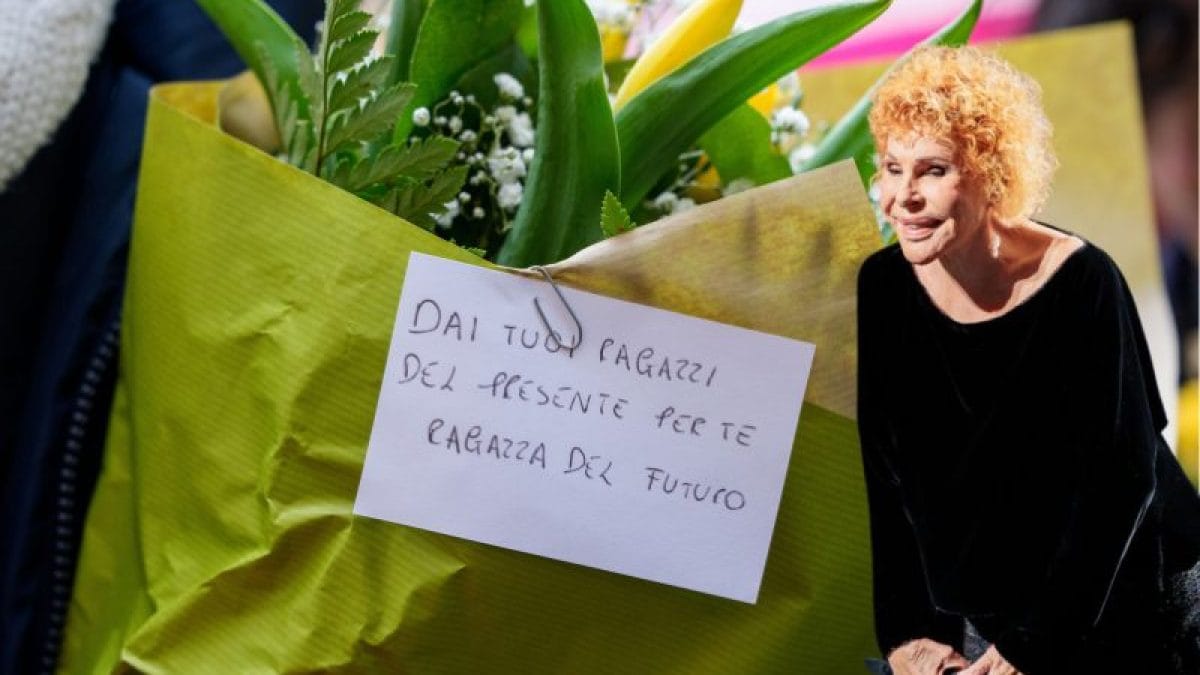 DAI TUOI RAGAZZI
DEL PRESENTE PER TE
RAGAZZA DEL FUTURO